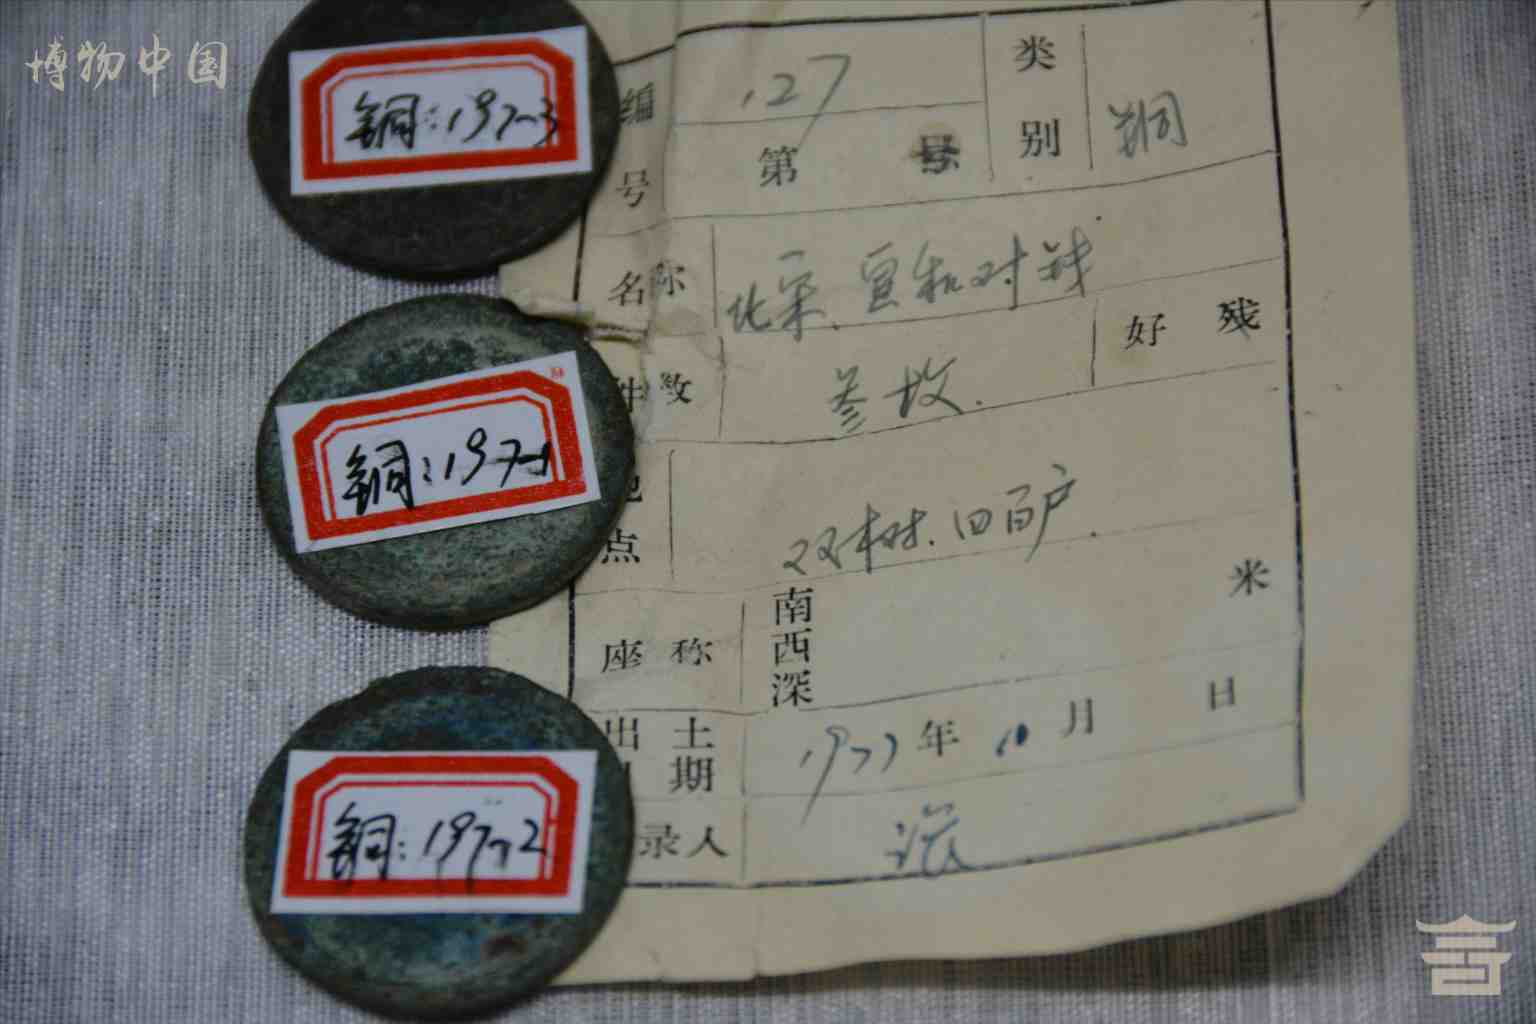 博物中国
铜:197-3
铜:197-1
铜:197-2
编号 127 第 号 类别 铜
名称 北宋.宣和对钱
件数 叁坟. 好 残
地点 双树.四百户.
座称 南西深 米
出土日期 1977年10月 日
录人